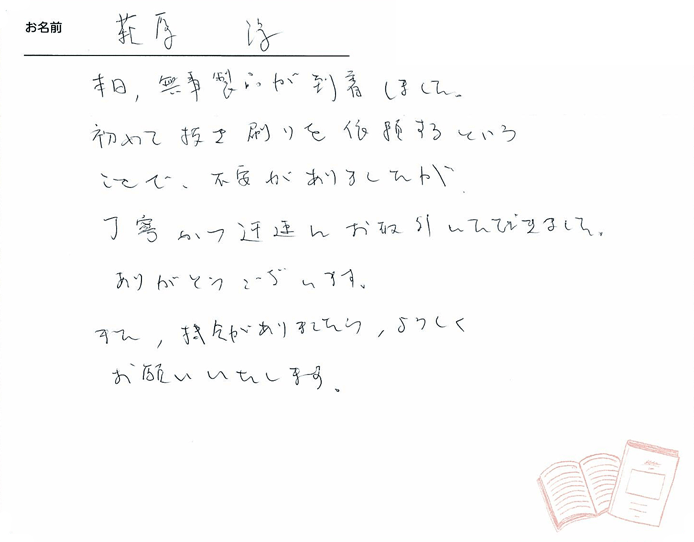 お名前 萩原 淳
本日、無事製品が到着しました。
初めて抜き刷りを依頼するという
ことで、不安がありましたが
丁寧かつ迅速にお取引いただきました。
ありがとうございます。
また、機会がありましたら、よろしく
お願いいたします。